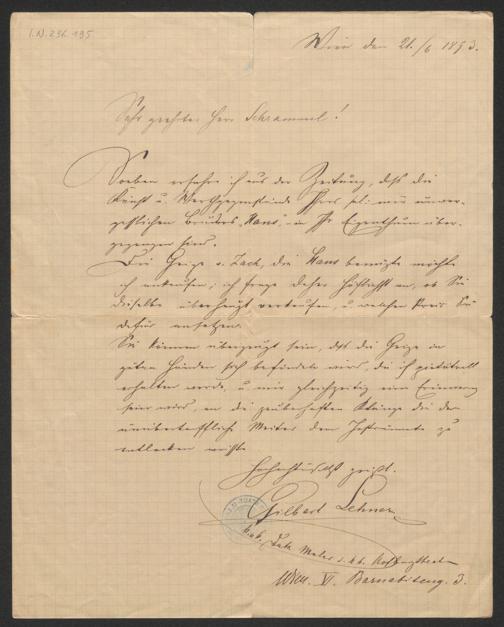 I.N. 236.195
Wien den 21./6 1893.
Sehr geehrter Herr Schrammel!
Soeben erfahre ich aus der Zeitung, daß die
Kunst u. Werthgegenstände Ihres sel. nun unver-
geßlichen Bruders "Hans" in Ihr Eigenthum über-
gegangen sind.
Die Geige v. Zach, die Hans benützte möchte
ich ankaufen; ich frage daher höflichst an, ob Sie
dieselbe überhaupt verkaufen, u. welchen Preis Sie
dafür ansetzen.
Sie können überzeugt sein, daß die Geige in
guten Händen sich befinden wird, da ich pietätvoll
erhalten werde, u. mir gleichzeitig eine Erinnerung
sein wird, an die zauberhaften Klänge die der
unübertreffliche Meister dem Instrumente zu
entlocken wußte
Hochachtungsvollst zeichnet
Gilbert Lehner
k. k. Maler
Wien. VI. Barnabiteng. 3.